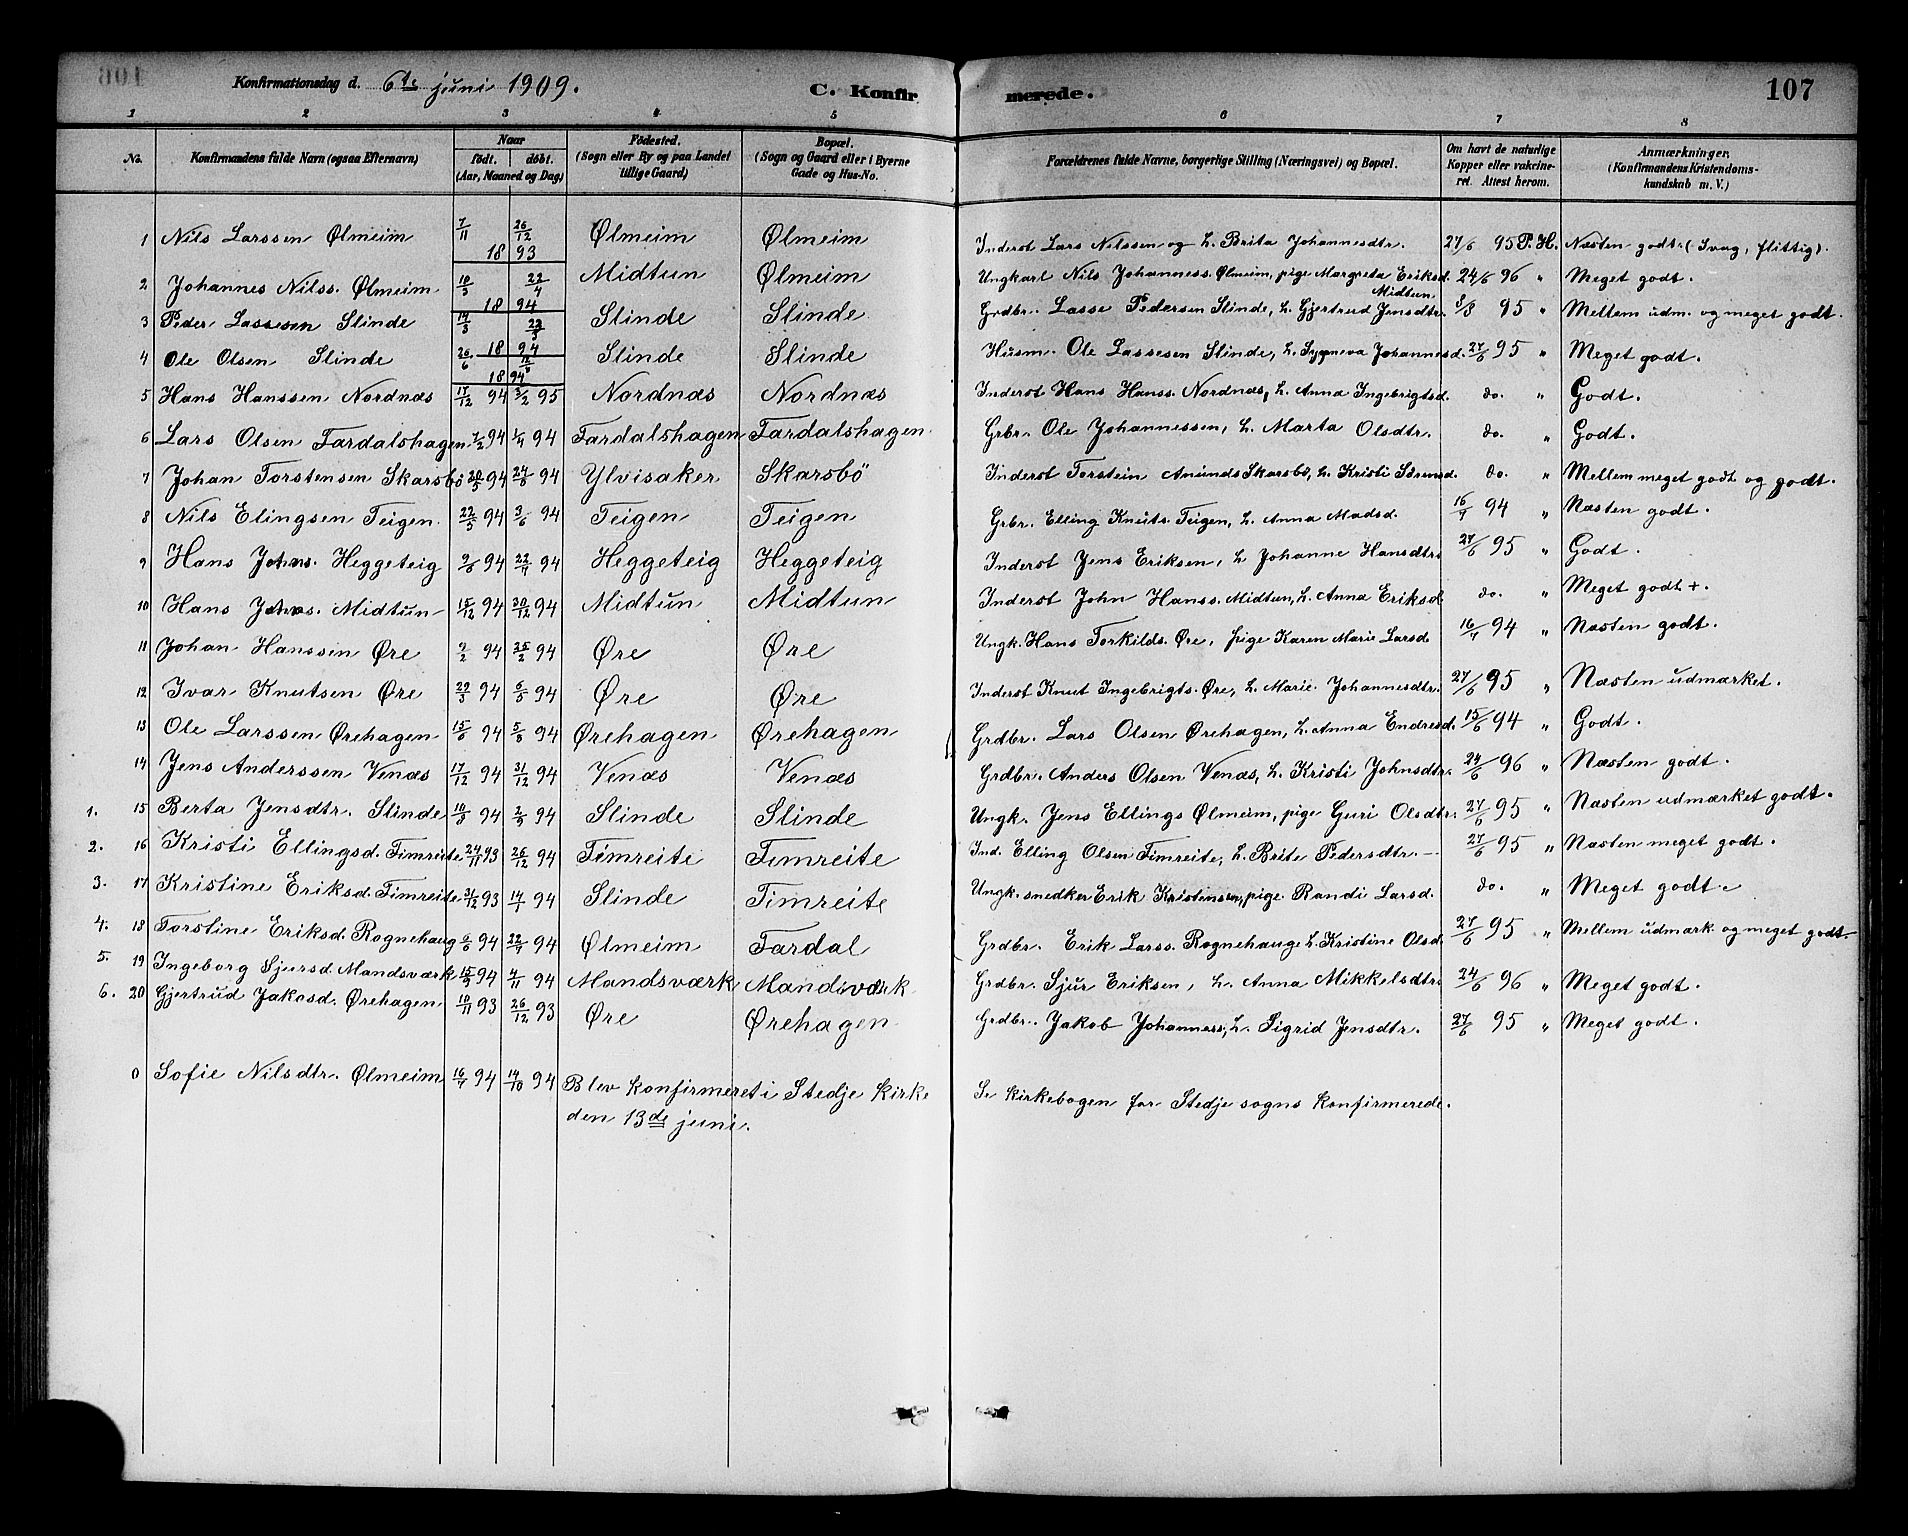 Konfirmationsdag d. 6te juni 1909.
C. Konfir merede. 107
1 2 3 4 5 6 7 8
No. Konfirmandens fulde Navn (ogsaa Efternavn) Naar født. døbt. (Aar, Maaned og Dag) Fødested. (Sogn eller By og paa Landet tillige Gaard) Bopæl. (Sogn og Gaard eller i Byerne Gade og Hus-No. Forældrenes fulde Navne, borgerlige Stilling (Næringsvei) og Bopæl. Om havt de naturlige Kopper eller vakcineret. Attest herom. Anmærkninger. (Konfirmandens Kristendomskundskab m. V.)
1 Nils Larssen Ølmeim 7/11 26/12 1893 Ølmeim Ølmeim Inderst Lars Nilssen og h. Brita Johannesdtr. 27/6 95 P. H. Næsten godt. (Svag, flittig).
2 Johannes Nilss. Ølmeim 10/3 22/4 1894 Midtun Ølmeim Ungkarl Nils Johanness. Ølmeim, pige Margreta Eriksd. Midtun 24/6 96 " Meget godt.
3 Peder Lassesen Slinde 14/3 23/3 1894 Slinde Slinde Grdbr. Lasse Pedersen Slinde, h. Gjertrud Jensdtr. 3/8 95 " Mellem udm. og meget godt.
4 Ole Olsen Slinde 26/6 1894 Slinde Slinde Husm. Ole Lassesen Slinde, h. Sygneva Johannesd. 27/6 95 " Meget godt.
5 Hans Hanssen Nordnæs 17/12 94 3/2 95 Nordnæs Nordnæs Inderst Hans Hanss. Nordnæs, h. Anna Ingebrigtsd. do. " Godt.
6 Lars Olsen Fardalshagen 94 94 Fardalshagen Fardalshagen Grbr. Ole Johannessen, h. Marta Olsdtr. do. " Godt.
7 Johan Torstensen Skarsbø 94 94 Ylvisaker Skarsbø Inderst Torstein Anunds Skarsbø, h. Kristi do. " Mellem meget godt og godt.
8 Nils Elingsen Teigen 22/5 94 3/6 94 Teigen Teigen Grbr. Elling Knuts. Teigen, h. Anna Madsd. 16/7 94 " Næsten godt.
9 Hans Johns. Heggeteig 94 94 Heggeteig Heggeteig Inderst Jens Eriksen, h Johanne Hansdtr. 27/6 95 " Godt.
10 Hans Johns. Midtun 15/12 94 30/12 94 Midtun Midtun Inderst John Hanss. Midtun, h. Anna Eriksd do. " Meget godt +.
11 Johan Hanssen Øre 9/2 94 25/2 94 Øre Øre Ungk. Hans Torkilds. Øre, pige Karen Marie Larsd. 16/7 94 " Næsten godt.
12 Ivar Knutsen Øre 94 94 Øre Øre Inderst Knut Ingebrigts. Øre, h. Marie Johannesdtr. 27/6 95 " Næsten udmærket.
13 Ole Larssen Ørehagen 94 94 Ørehagen Ørehagen Grdbr. Lars Olsen Ørehagen, h. Anna Endresd. 15/6 94 " Godt.
14 Jens Anderssen Venæs 17/12 94 31/12 94 Venæs Venæs Grdbr. Anders Olsen Venæs, h. Kristi Johnsdtr. 24/6 96 " Næsten godt.
1. 15 Berta Jensdtr. Slinde 94 94 Slinde Slinde Ungk. Jens Ellings Ølmeim, pige Guri Olsdtr. 27/6 95 " Næsten udmærket godt.
2. 16 Kristi Ellingsd. Timreite 24/11 93 26/12 94 Timreite Timreite Ind. Elling Olsen Timreite, h. Brite Pedersdtr. — 27/6 95 " Næsten meget godt.
3. 17 Kristine Eriksd. Timreite 93 14/1 94 Slinde Timreite Ungk. snedker Erik Kristensen, pige Randi Larsd. do. " Meget godt.
4. 18 Torstine Eriksd. Rognehaug 94 94 Ølmeim Fardal Grdbr. Erik Larss. Rognehaug h. Kristine Olsd. 27/6 95 " Mellem udmærk. og meget godt.
5. 19 Ingeborg Sjursd. Mandsværk 94 4/11 94 Mandsværk Mandsværk Grdbr. Sjur Eriksen, h. Anna Mikkelsdtr. 24/6 96 " Meget godt.
6. 20 Gjertrud Jakobsd. Ørehagen 10/11 93 26/12 93 Øre Ørehagen Grdbr. Jakob Johanness, h. Sigrid Jensdtr. 27/6 95 " Meget godt.
0 Sofie Nilsdtr. Ølmeim 94 14/10 94 Blev konfirmeret i Stedje kirke Se kirkebogen for Stedje sogns konfirmerede.
den 13de juni.